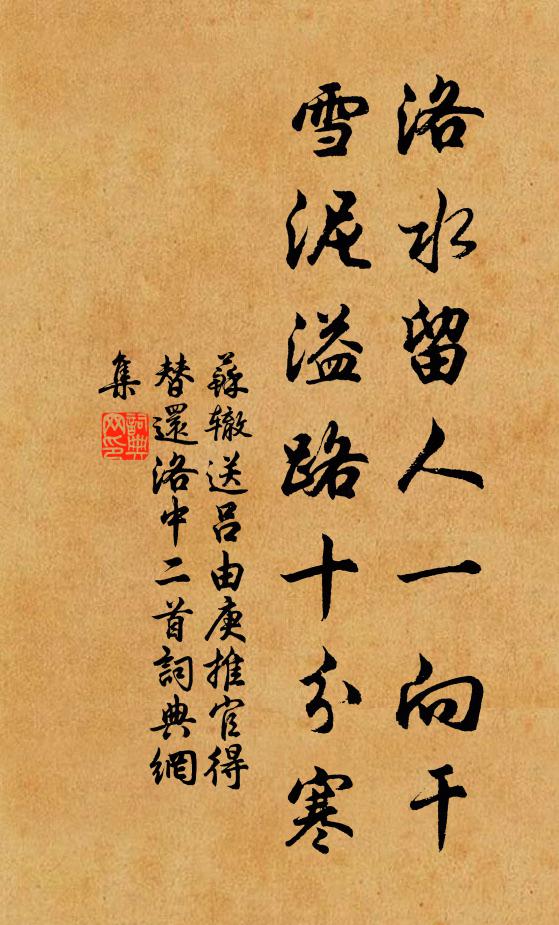 洛水留人一向干
雪泥溢路十分寒
蘇辙送吕由庚推官得
替還洛中二首詞典網
集
詞典
网印